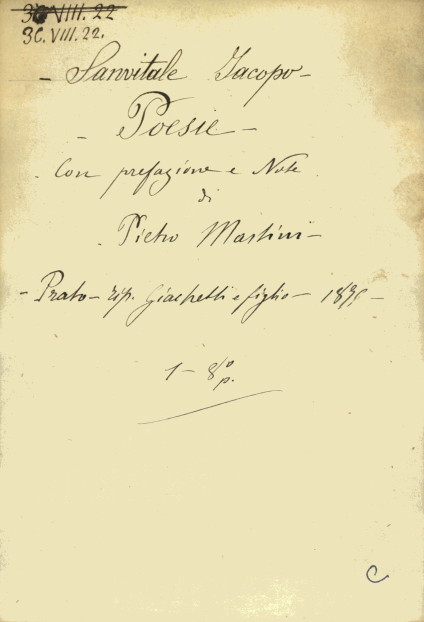 36 VIII. 22
36. VIII. 22.
- Sanvitale Jacopo -
- Poesie -
Con prefazione e Note
di
Pietro Martini -
- Prato - tip. Giachetti e figlio - 1875 -
1 - 8º p.
C